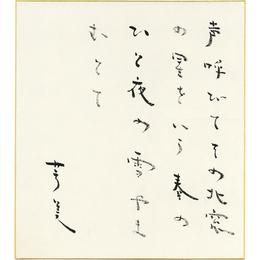 声呼びてその北窓
の星をいう春の
ひと夜の雪やま
むとて
芳美